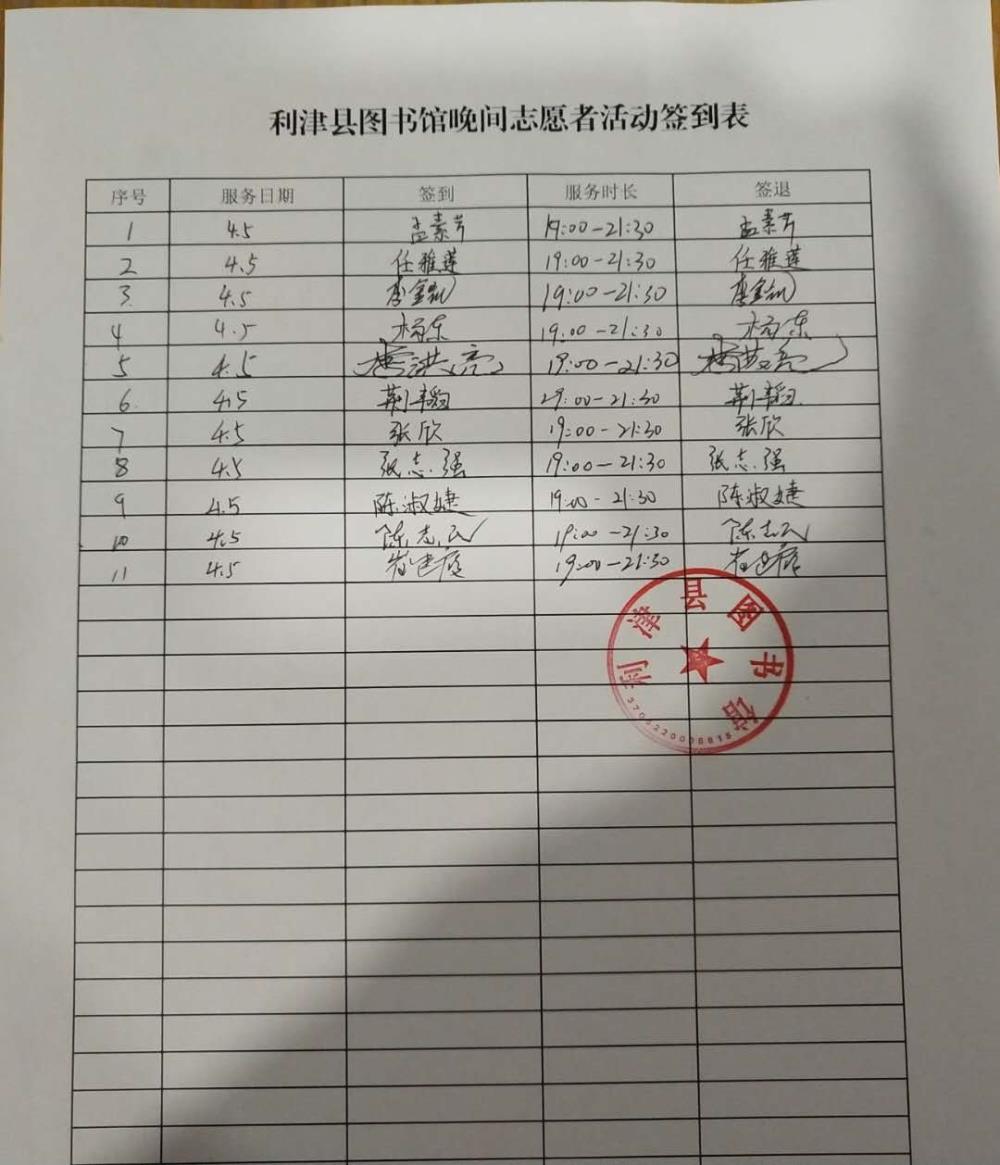 利津县图书馆晚间志愿者活动签到表
序号 服务日期 签到 服务时长 签退
1 4.5 孟素芹 19:00-21:30 孟素芹
2 4.5 任雅莲 19:00-21:30 任雅莲
3 4.5 李金凯 19:00-21:30 李金凯
4 4.5 杨东 19:00-21:30 杨东
5 4.5 洪亮 19:00-21:30
6 4.5 荆韦韬 19:00-21:30
7 4.5 张欣 19:00-21:30 张欣
8 4.5 张志强 19:00-21:30 张志强
9 4.5 陈淑婕 19:00-21:30 陈淑婕
10 4.5 陈志民 19:00-21:30 陈志民
11 4.5 19:00-21:30
利津县图书馆